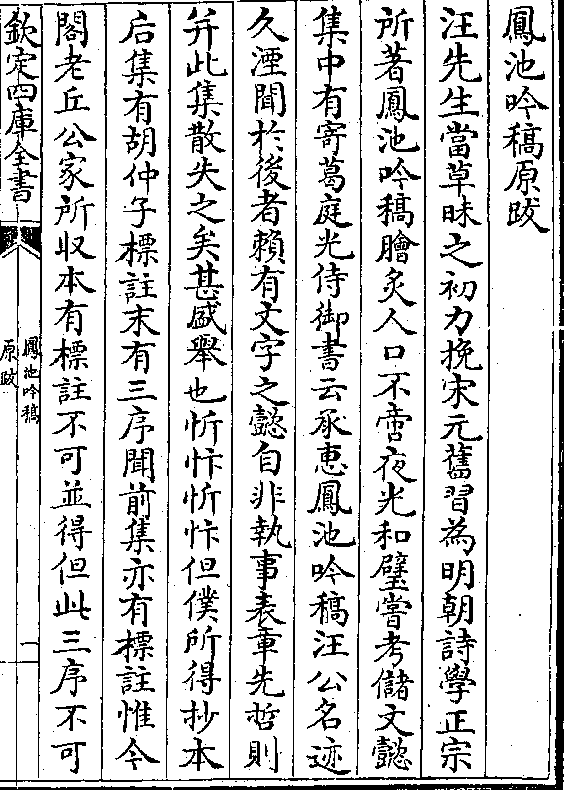 鳳池吟稿原跋
汪先生當草昧之初力挽宋元舊習為明朝詩學正宗
所著鳳池吟稿膾炙人口不啻夜光和璧嘗考儲文懿
集中有寄葛庭光侍御書云承惠鳳池吟稿汪公名迹
久湮聞於後者賴有文字之懿自非執事表章先哲則
并此集散失之矣甚盛舉也忻忭忻忭但僕所得抄本
后集有胡仲子標註末有三序聞前集亦有標註惟今
閣老丘公家所収本有標註不可並得但此三序不可
欽定四庫全書
鳳池吟稿
原跋
一